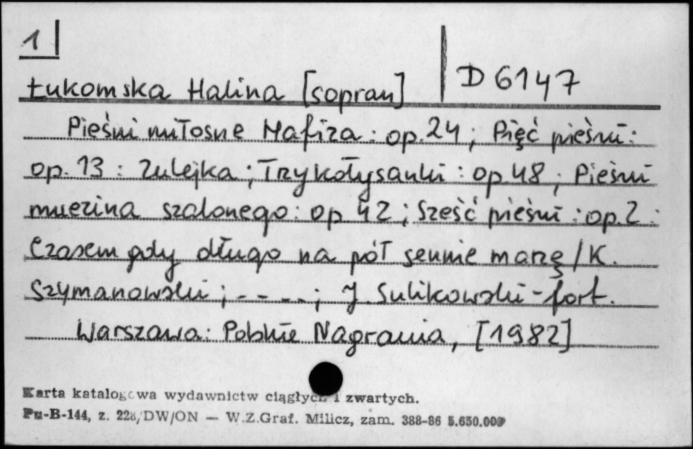 1
D 6147
Łukomska Halina [sopran]
Pieśni miłosne Hafiza : op. 24 ; Pięć pieśni :
op. 13 : Zulejka ; Trzy kołysanki : op. 48 ; Pieśni
muezina szalonego : op 42 ; Sześć pieśni : op. 2 :
Czasem gdy długo na pół sennie marzę / K.
Szymanowski ; - - - - ; J. Sulikowski - fort.
Warszawa : Polskie Nagrania, [1982]
Karta katalogowa wydawnictw ciągłych i zwartych.
Pu-B-144, z. 228/DW/ON — W.Z.Graf. Milicz, zam. 388-86 5.650.000